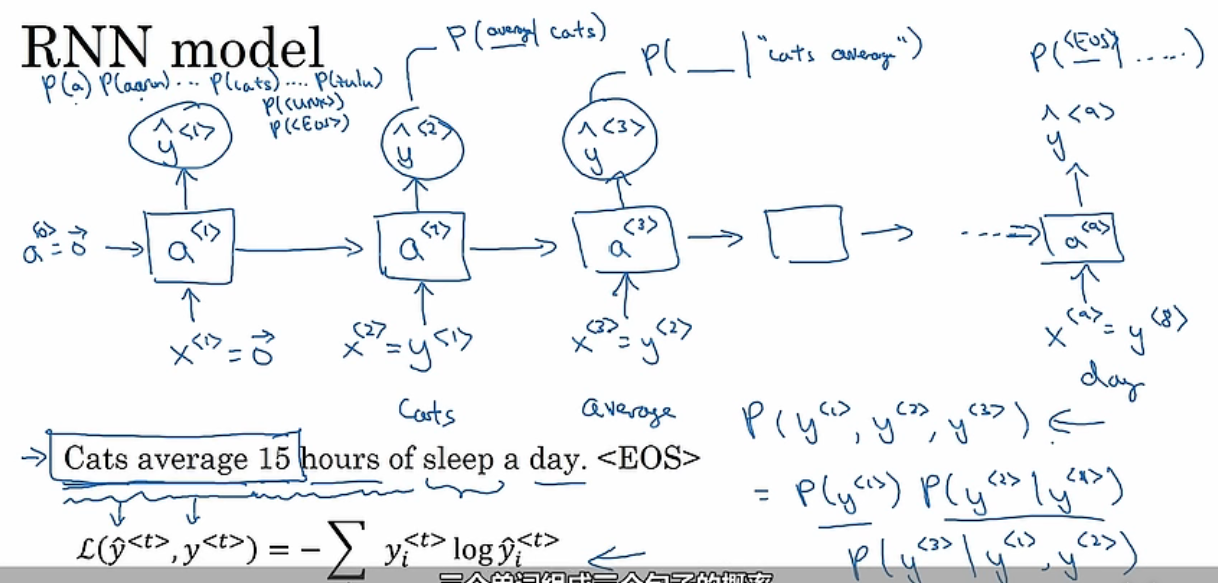 RNN model
P(a) P(aaron) ... P(cats) .... P(zulu)
P(<UNK>)
P(<EOS>)
P(average | cats)
P(__ | "cats average")
P(<EOS> | .....)
ŷ<1>
ŷ<2>
ŷ<3>
ŷ<9>
a<0> = 0⃗
a<1>
a<2>
a<3>
a<9>
x<1> = 0⃗
x<2> = y<1>
x<3> = y<2>
x<9> = y<8>
Cats
average
day
Cats average 15 hours of sleep a day. <EOS>
P(y<1>, y<2>, y<3>)
= P(y<1>) P(y<2> | y<1>)
P(y<3> | y<1>, y<2>)
ℒ(ŷ<t>, y<t>) = − ∑ yᵢ<t> log ŷᵢ<t>
三个单词组成三个句子的概率